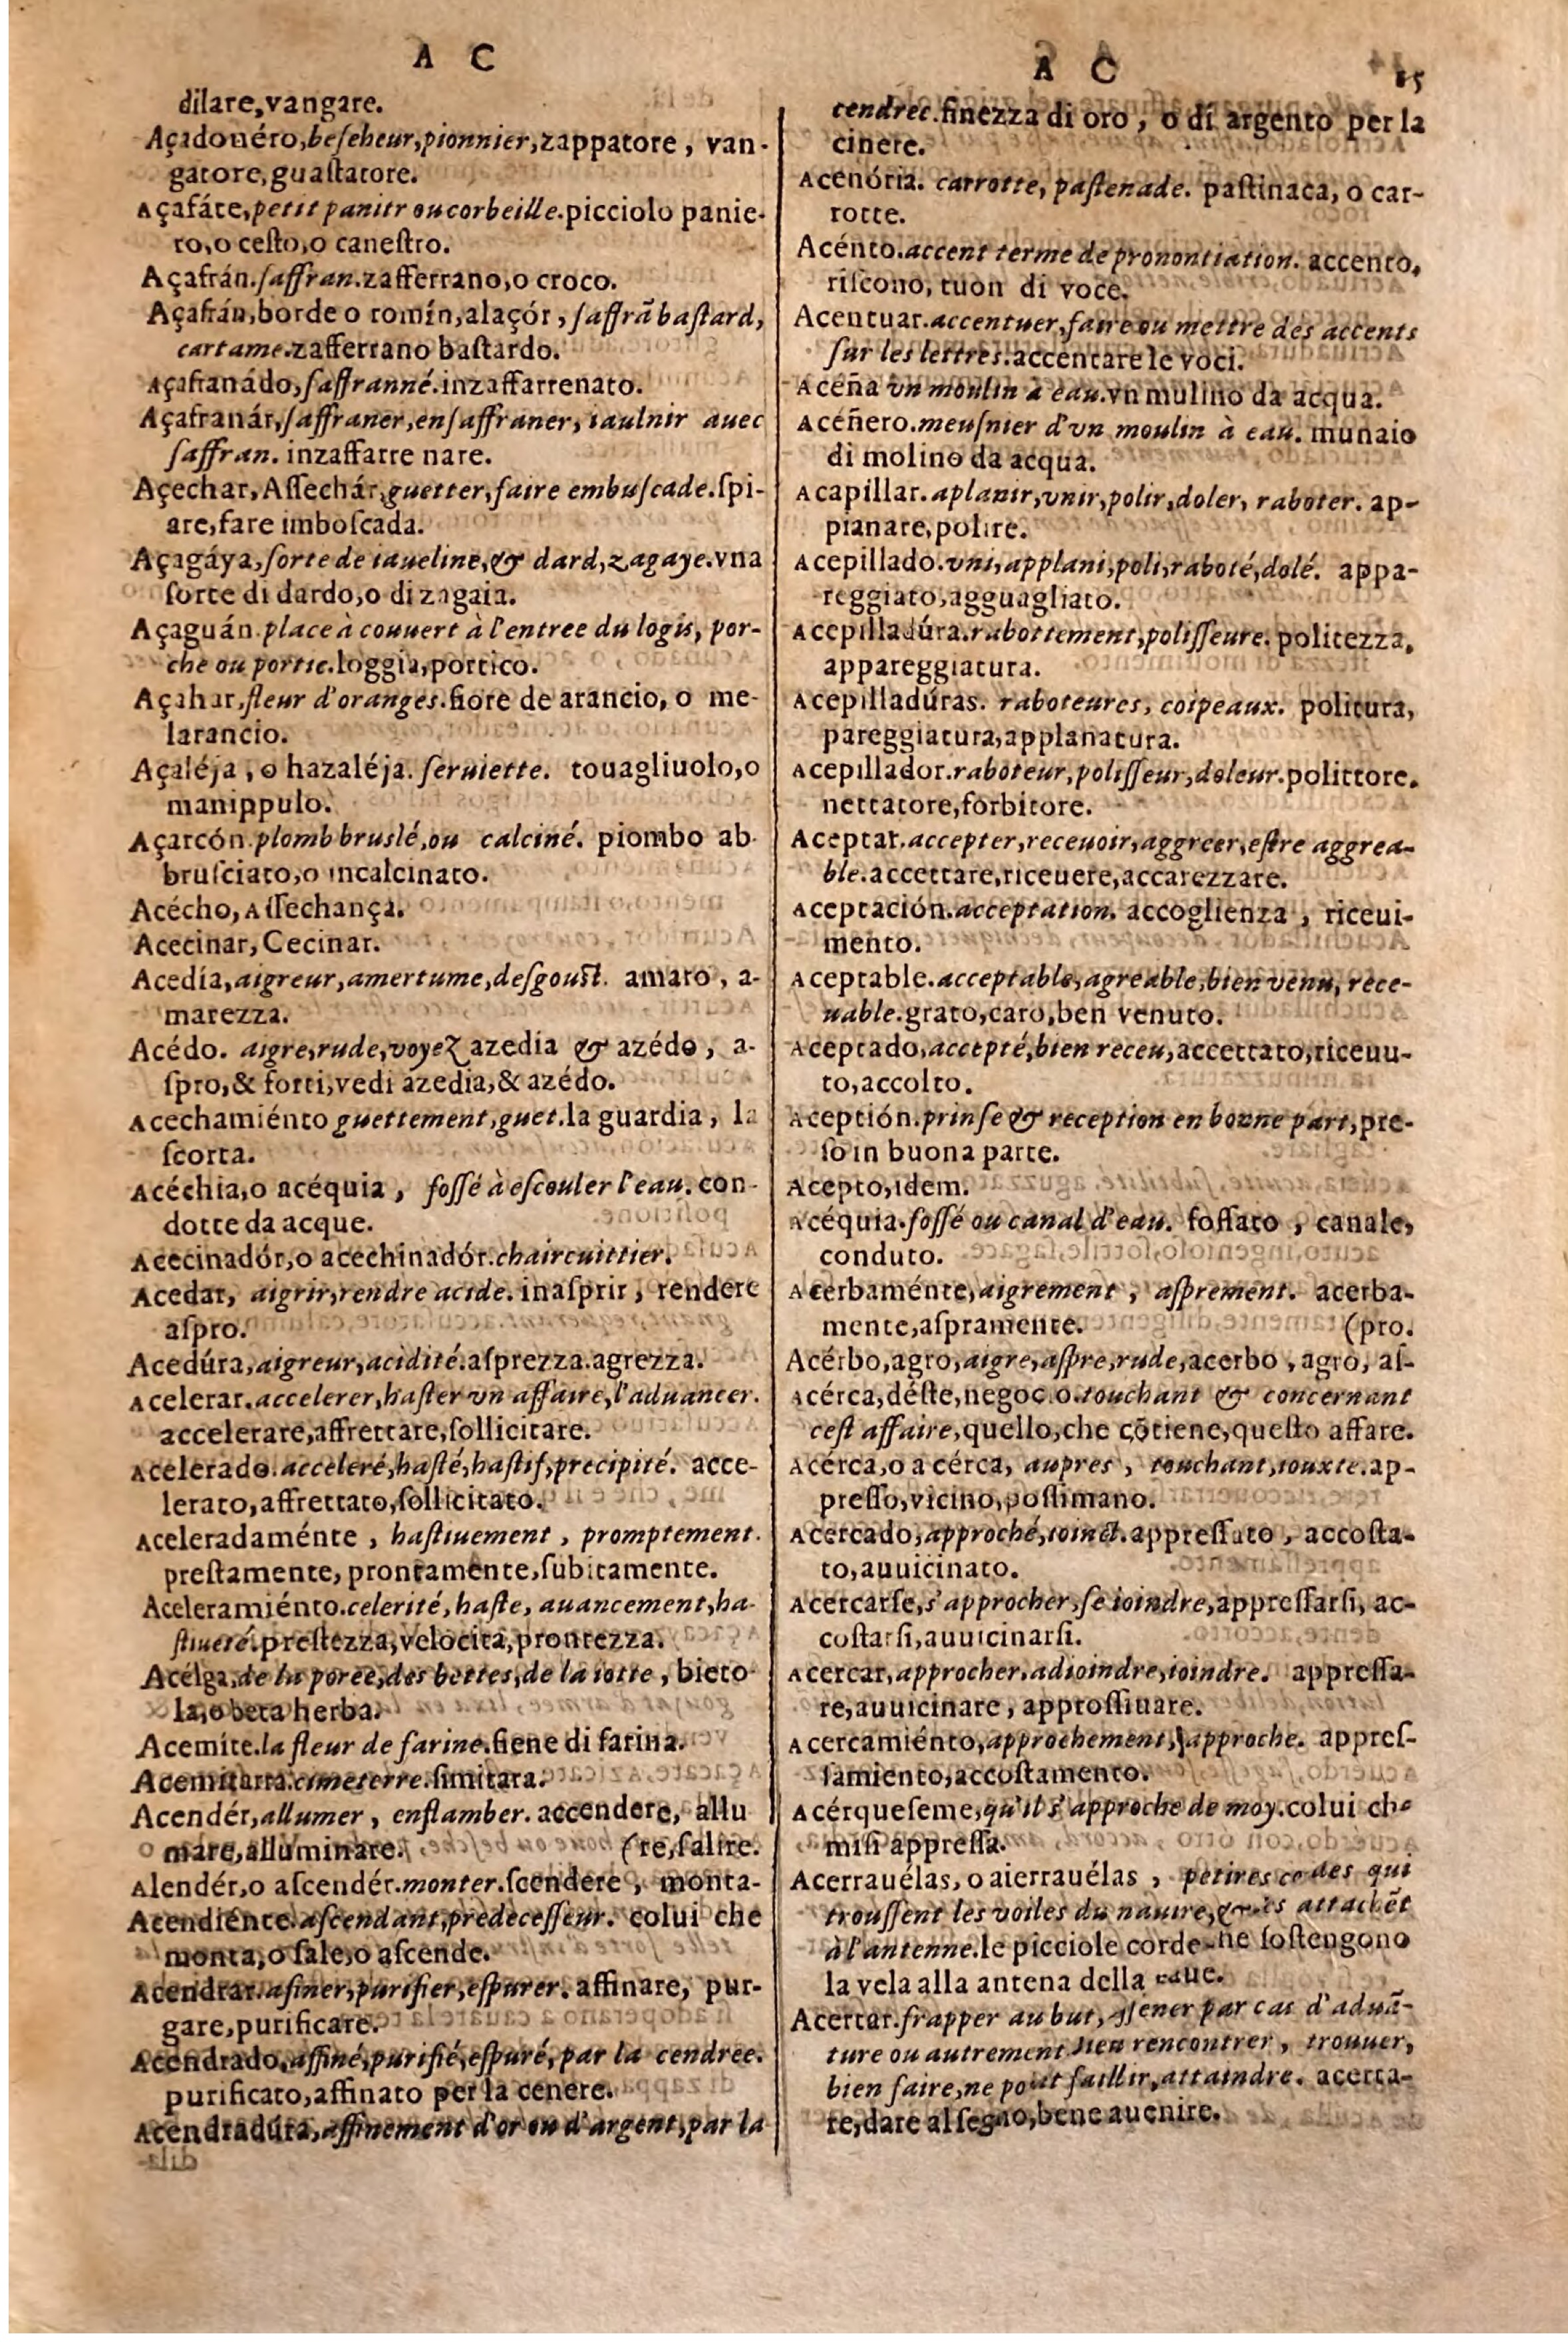 A C
dilare,vangare.
Açadouéro,beſeheur,pionnier,zappatore, van-
gatore,guaſtatore.
Açafáte,petit panitr ou corbeille.picciolo panie-
ro,o ceſto,o caneſtro.
Açafrán.ſaffran.zafferrano,o croco.
Açafrán,borde o romín,alaçór, ſaffrā baſtard,
cartame.zafferrano baſtardo.
Açafranádo,ſaffranné.inzaffarrenato.
Açafranár,ſaffraner,enſaffraner, iaulnir auec
ſaffran. inzaffarre nare.
Açechar, Aſſechár,guetter,faire embuſcade.ſpi-
are,fare imboſcada.
Açagáya,ſorte de iaueline,& dard,zagaye.vna
ſorte di dardo,o di zagaia.
Açaguán.place à couuert à l'entree du logis, por-
che ou portic.loggia,portico.
Açahar,fleur d'oranges.fiore de arancio, o me-
larancio.
Açaléja, o hazaléja. ſeruiette. touagliuolo,o
manippulo.
Açarcón.plomb bruslé,ou calciné. piombo ab-
bruſciato,o incalcinato.
Acécho, Aſſechança.
Acecinar, Cecinar.
Acedía,aigreur,amertume,deſgouſt. amaro, a-
marezza.
Acédo. aigre,rude,voyez azedia & azédo, a-
ſpro,& forti,vedi azedia,& azédo.
Acechamiénto guettement,guet.la guardia, la
ſcorta.
Acéchia,o acéquia, foſſé à eſcouler l'eau. con-
dotte da acque.
Acecinadór,o acechinadór.chaircuittier.
Acedar, aigrir,rendre acide. inaſprir, rendere
aſpro.
Acedúra,aigreur,acidité.aſprezza.agrezza.
Acelerar.accelerer,haſter vn affaire,l'aduancer.
accelerare,affrettare,ſollicitare.
Acelerado.acceleré,haſté,haſtif,precipité. acce-
lerato,affrettato,ſollicitato.
Aceleradaménte, haſtiuement, promptement.
preſtamente, prontamente,ſubitamente.
Aceleramiénto.celerité,haſte, auancement,ha-
ſtiueté.preſtezza,velocita,prontezza.
Acélga,de la poree,des bettes,de la iotte, bieto-
la,o beta herba.
Acemite.la fleur de farine.fiene di farina.
Acemitarra.cimeterre.ſimitara.
Acendér,allumer, enflamber. accendere, allu
mare,alluminare. (re,ſalire.
Alendér,o aſcendér.monter.ſcendere, monta-
Acendiénte.aſcendant,predeceſſeur. colui che
monta,o ſale,o aſcende.
Acendrar.afiner,purifier,eſpurer. affinare, pur-
gare,purificare.
Acendrado,affiné,purifié,eſpuré,par la cendree.
purificato,affinato per la cenere.
Acendradúra,affinement d'or ou d'argent,par la
A C 15
cendree.finezza di oro, o di argento per la
cinere.
Acenória. carrotte, paſtenade. paſtinaca, o car-
rotte.
Acénto.accent terme de prononciation. accento,
riſcono, tuon di voce.
Acentuar.accentuer,faire ou mettre des accents
ſur les lettres.accentare le voci.
Aceña vn moulin a eau.vn mulino da acqua.
Acéñero.meuſnier d'vn moulin à eau. munaio
di molino da acqua.
Acapillar. aplanir,vnir,polir,doler, raboter. ap-
pianare,polire.
Acepillado.vni,applani,poli,raboté,dolé. appa-
reggiato,agguagliato.
Acepilladúra.rabottement,poliſſeure. politezza,
appareggiatura.
Acepilladúras. raboteures, coipeaux. politura,
pareggiatura,applanatura.
Acepillador.raboteur,poliſſeur,doleur.polittore,
nettatore,forbitore.
Aceptar.accepter,receuoir,aggreer,eſtre aggrea-
ble.accettare,riceuere,accarezzare.
Aceptación.acceptation. accoglienza, riceui-
mento.
Aceptable.acceptable,agreable,bien venu, rece-
uable.grato,caro,ben venuto.
Aceptado,accepté,bien receu,accettato,riceuu-
to,accolto.
Aceptión.prinſe & reception en bonne part,pre-
ſo in buona parte.
Acepto,idem.
Acéquia.foſſé ou canal d'eau. foſſato, canale,
conduto.
Acerbaménte,aigrement, aſprement. acerba-
mente,aſpramente. (pro.
Acérbo,agro,aigre,aſpre,rude,acerbo, agro, aſ-
Acérca,déſte,negoc o.touchant & concernant
ceſt affaire,quello,che cōtiene,queſto affare.
Acérca,o a cérca, aupres, touchant,iouxte.ap-
preſſo,vicino,poſſimano.
Acercado,approché,ioinct.appreſſato, accoſta-
to,auuicinato.
Acercarſe,s'approcher,ſe ioindre,appreſſarſi, ac-
coſtarſi,auuicinarſi.
Acercar,approcher,adioindre,ioindre. appreſſa-
re,auuicinare, approſſiuare.
Acercamiénto,approchement,approche. appreſ-
ſamiento,accoſtamento.
Acérqueſeme,qu'il s'approche de moy.colui che
miſi appreſſa.
Acerrauélas, o aierrauélas, petires co des qui
trouſſent les voiles du nauire, attachēt
à l'antenne.le picciole corde ne ſoſtengono
la vela alla antena della naue.
Acertar.frapper au but, aſſener par cas d'aduā-
ture ou autrement bien rencontrer, trouuer,
bien faire,ne point faillir,attaindre. acerta-
re,dare al ſegno,bene auenire.